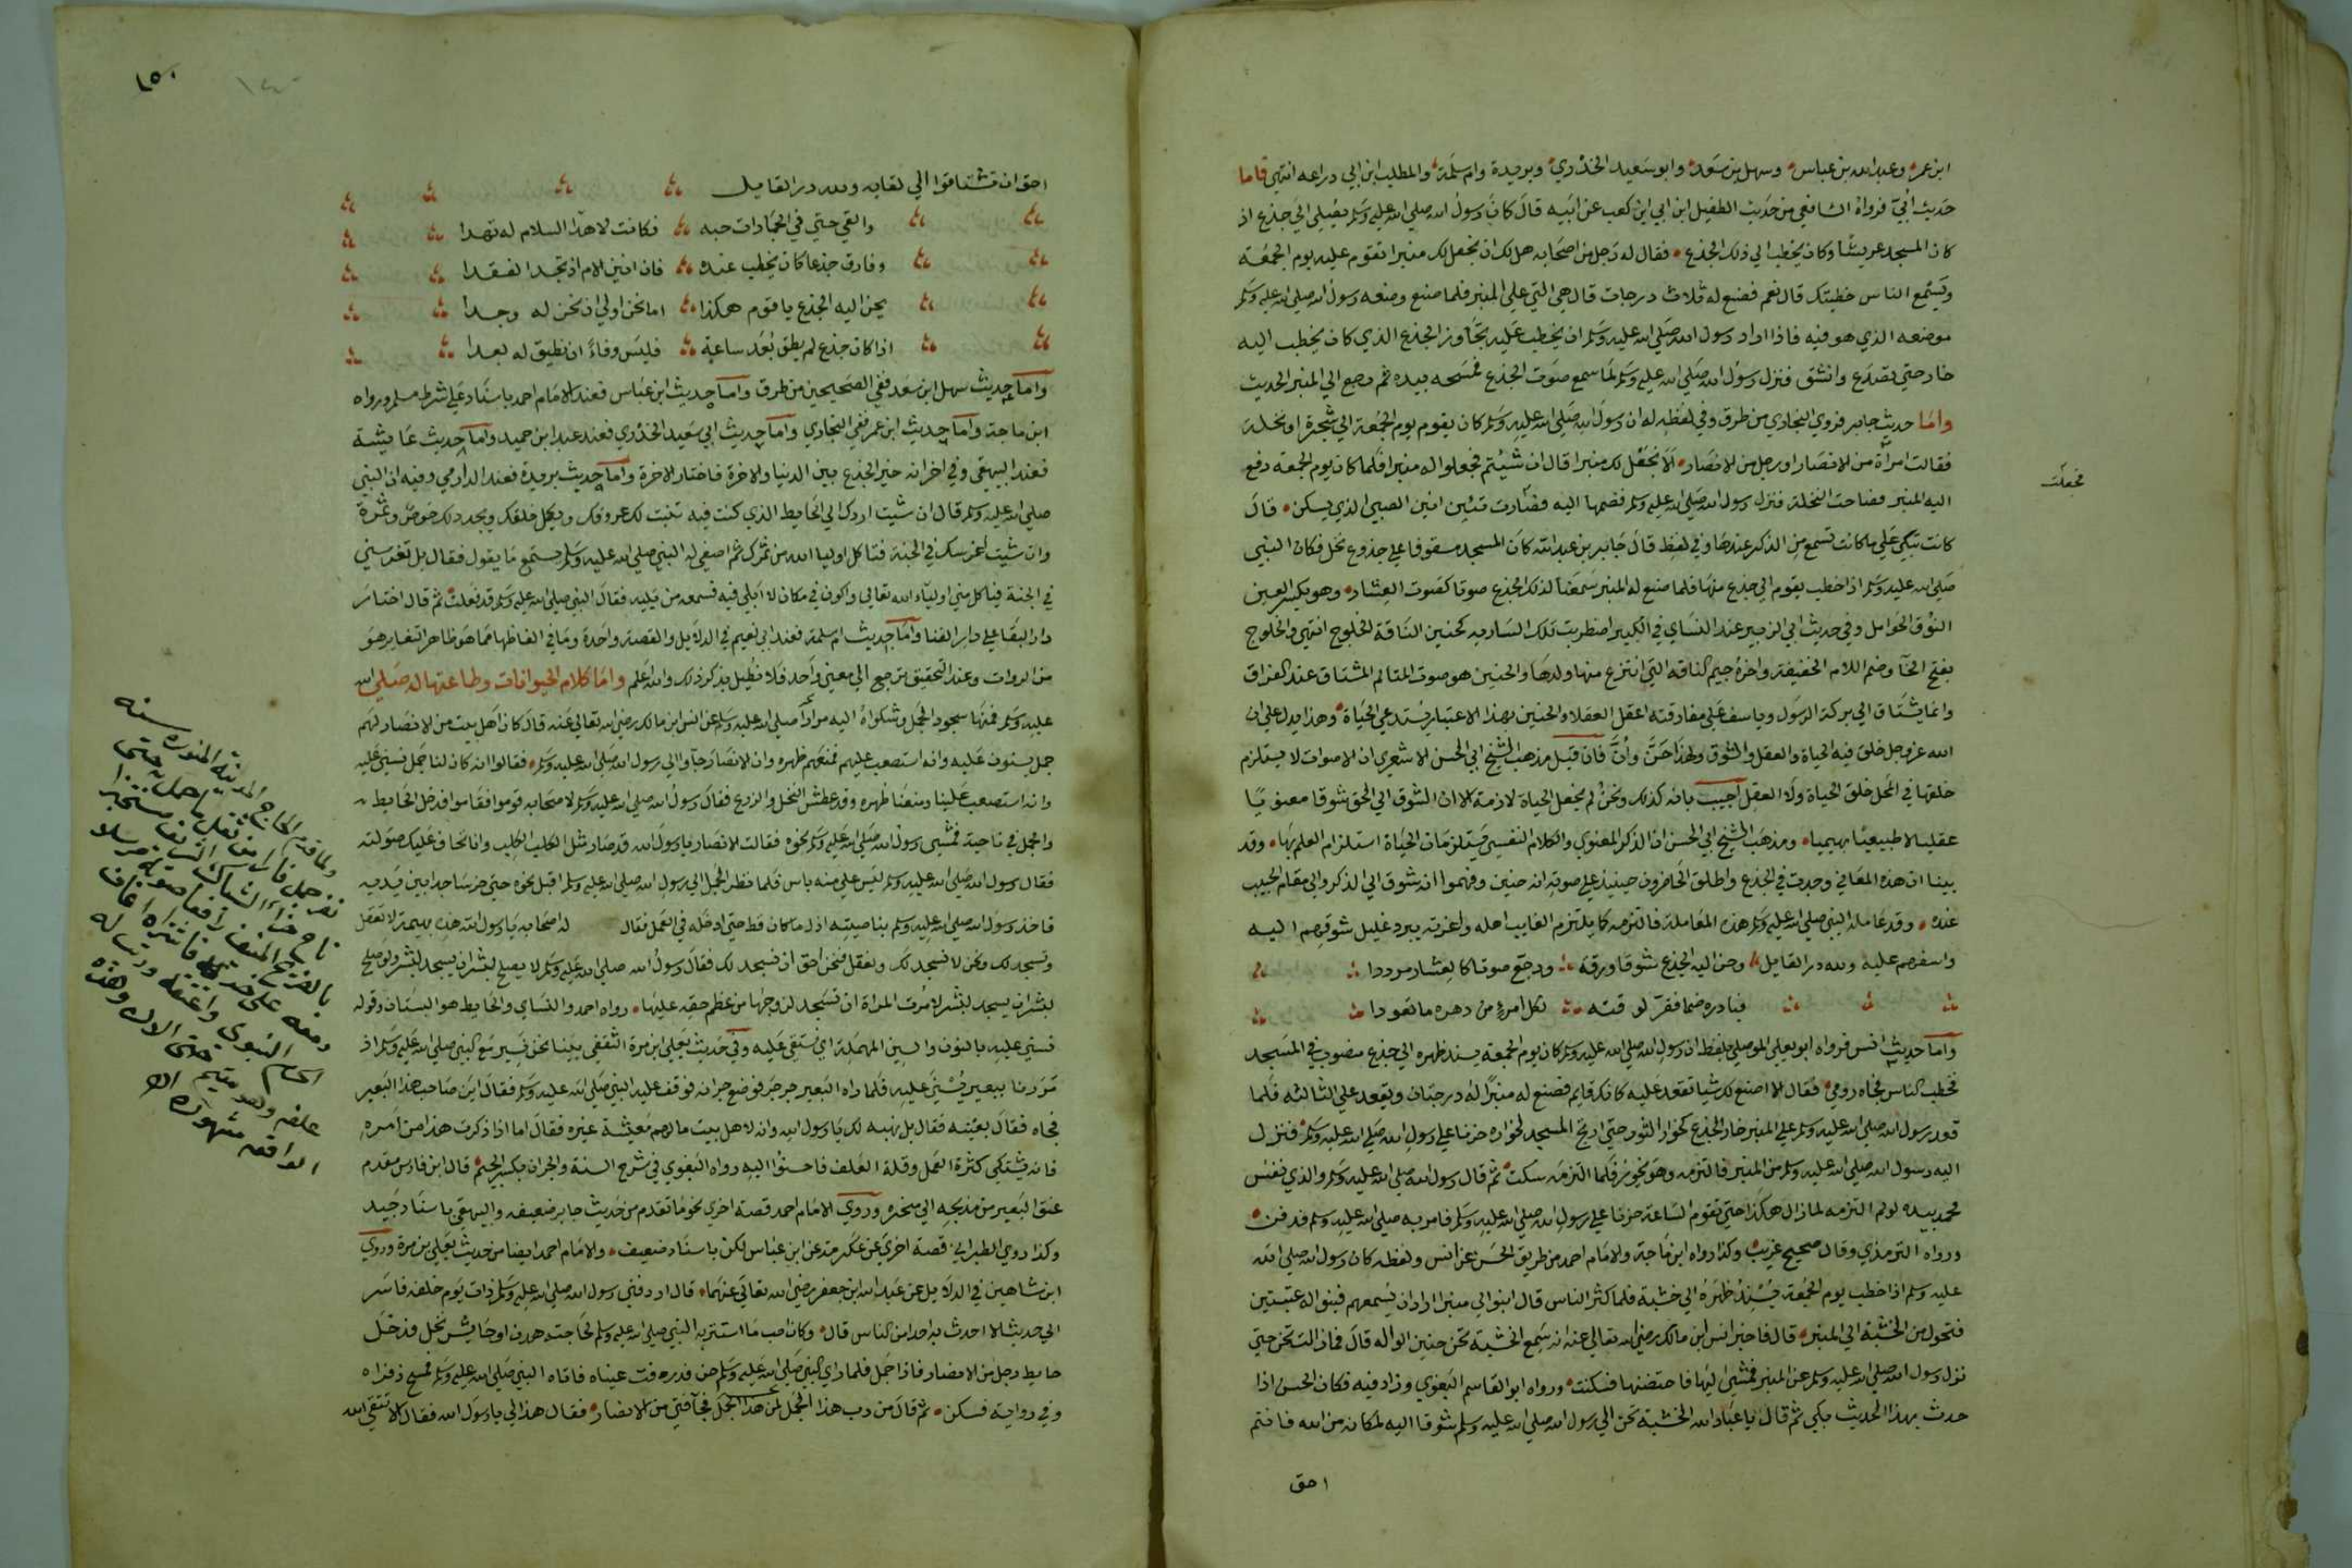 ابن عمر وعبد الله بن عباس وسهل بن سعد وابو سعيد الخدري وبريدة وام سلمة والمطلب ابن ابي وداعه انتهى فاما
حديث ابيّ فرواه الشافعي من حديث الطفيل ابن ابي ابن كعب عن ابيه قال كان رسول الله صلى الله عليه وسلم يصلي الى جذع اذ
كان المسجد عريشا وكان يخطب الى ذلك الجذع فقال له رجل من اصحابه هل لك ان نجعل لك منبرا تقوم عليه يوم الجمعة
وتسمع الناس خطبتك قال نعم فصنع له ثلاث درجات قال هي التي على المنبر فلما صنع وضعه رسول الله صلى الله عليه وسلم
موضعه الذي هو فيه فاذا اراد رسول الله صلى الله عليه وسلم ان يخطب عليه تجاوز الجذع الذي كان يخطب اليه
خار حتى تصدع وانشق فنزل رسول الله صلى الله عليه وسلم لما سمع صوت الجذع فمسحه بيده ثم رجع الى المنبر الحديث
واما حديث جابر فروي البخاري من طرق وفي لفظ له ان رسول الله صلى الله عليه وسلم كان يقوم يوم الجمعة الى شجرة او نخلة
فقالت امرأة من الانصار او رجل من الانصار الا نجعل لك منبرا قال ان شيتم فجعلوا له منبرا فلما كان يوم الجمعة دفع
اليه المنبر فصاحت النخلة فنزل رسول الله صلى الله عليه وسلم فضمها اليه فصارت تئن انين الصبي الذي يسكن قال
كانت تبكي على ما كانت تسمع من الذكر عندها وفي لفظ قال جابر بن عبد الله كان المسجد مسقوفا على جذوع نخل فكان النبي
صلى الله عليه وسلم اذا خطب يقوم الى جذع منها فلما صنع له المنبر سمعنا لذلك الجذع صوتا كصوت العشار وهو بكسر العين
النوق الحوامل وفي حديث ابي الزبير عند النساي في الكبير اضطربت تلك السارية كحنين الناقة الخلوج انتهى والخلوج
بفتح الخا وضم اللام الخفيفة واخره جيم الناقه التي انتزع منها ولدها والحنين هو صوت المتالم المشتاق عند الفراق
وانما يشتاق الى بركة الرسول وياسف على مفارقته اعقل العقلا والحنين بهذا الاعتبار يستدعي الحياة وهذا يدل على ان
الله عز وجل خلق فيه الحياة والعقل والشوق ولهذا حَنَّ وأنَّ فان قيل مذهب الشيخ ابي الحسن الاشعري ان الاصوات لا يستلزم
خلقها في المحل خلق الحياة ولا العقل اجيب بانه كذلك ونحن لم نجعل الحياة لازمة الا ان الشوق الى الحق شوقا معنويا
عقليا لا طبيعيا بهيميا ومذهب الشيخ ابي الحسن ان الذكر المعنوي والكلام النفسي يستلزمان الحياة استلزام العلم بها وقد
بينا ان هذه المعاني وجدت في الجذع واطلق الحاضرون حينئذ على صوته انه حنين وفهموا انه شوق الى الذكر والى مقام الحبيب
عنده وقد عامله النبي صلى الله عليه وسلم هذه المعاملة فالتزمه كما يلتزم الغايب اهله واعزته يبرد غليل شوقهم اليه
واسفهم عليه ولله در القايل وحن اليه الجذع شوقا ورقة ورجّع صوتا كالعشار مرددا
فبادره ضما فقرّ لوقته لكل امرئ من دهره ما تعودا
واما حديث انس فرواه ابو يعلى الموصلي بلفظ ان رسول الله صلى الله عليه وسلم كان يوم الجمعة يسند ظهره الى جذع منصوب في المسجد
فخطب الناس فجاه رومي فقال الا اصنع لك شيا تقعد عليه كانك قايم فصنع له منبرا له درجتان ويقعد على الثالثه فلما
قعد رسول الله صلى الله عليه وسلم على المنبر خار الجذع كخوار الثور حتى ارتج المسجد لخواره حزنا على رسول الله صلى الله عليه وسلم فنزل
اليه رسول الله صلى الله عليه وسلم من المنبر فالتزمه وهو يخور فلما التزمه سكت ثم قال رسول الله صلى الله عليه وسلم والذي نفس
محمد بيده لو لم التزمه لما زال هكذا حتى تقوم الساعة حزنا على رسول الله صلى الله عليه وسلم فامر به صلى الله عليه وسلم فدفن
ورواه الترمذي وقال صحيح غريب وكذا رواه ابن ماجة والامام احمد من طريق الحسن عن انس ولفظه كان رسول الله صلى الله
عليه وسلم اذا خطب يوم الجمعة يسند ظهره الى خشبة فلما كثر الناس قال ابنوا لي منبرا اراد ان يسمعهم فبنوا له عتبتين
فتحول من الخشبة الى المنبر قال فاخبر انس ابن مالك رضي الله تعالى عنه انه سمع الخشبة تحن حنين الواله قال فما زالت تحن حتى
نزل رسول الله صلى الله عليه وسلم عن المنبر فمشى اليها فاحتضنها فسكنت ورواه ابو القاسم البغوي وزاد فيه فكان الحسن اذا
حدث بهذا الحديث بكى ثم قال يا عباد الله الخشبة تحن الى رسول الله صلى الله عليه وسلم شوقا اليه لمكانه من الله فانتم
احق
فجعلت
١٥٠
احق ان تشتاقوا الى لقايه ولله در القايل
والقي حتى في الجمادات حبه فكانت لاهدا السلام له تهدا
وفارق جذعا كان يخطب عنده فان انين الام اذ تجد الفقدا
يحن اليه الجذع يا قوم هكذا اما نحن اولى ان نحن له وجدا
اذا كان جذع لم يطق بُعد ساعة فليس وفاءً ان نطيق له بعدا
واما حديث سهل ابن سعد ففي الصحيحين من طرق واما حديث ابن عباس فعند الامام احمد باسناد على شرط مسلم ورواه
ابن ماجة واما حديث ابن عمر ففي البخاري واما حديث ابي سعيد الخدري فعند عبد ابن حميد واما حديث عايشة
فعند البيهقي وفي اخره انه خير الجذع بين الدنيا والاخرة فاختار الاخرة واما حديث بريدة فعند الدارمي وفيه ان النبي
صلى الله عليه وسلم قال ان شيت اردك الى الحايط الذي كنت فيه تنبت لك عروقك ويكمل خلقك ويجدد لك خوص وثمرة
وان شيت اغرسك في الجنة فتاكل اوليا الله من ثمرك ثم اصغى له النبي صلى الله عليه وسلم يستمع ما يقول فقال بل تغرسني
في الجنة فياكل مني اولياء الله تعالى واكون في مكان لا ابلى فيه فسمعه من يليه فقال النبي صلى الله عليه وسلم قد فعلت ثم قال اختار
دار البقا على دار الفنا واما حديث ام سلمة فعند ابي نعيم في الدلايل والقصة واحدة وما في الفاظها مما هو ظاهر التغاير هو
من الروات وعند التحقيق يرجع الى معنى واحد فلا نطيل بذكر ذلك والله اعلم واما كلام الحيوانات وطاعتها له صلى الله
عليه وسلم فمنها سجود الجمل وشكواه اليه صلى الله عليه وسلم عن انس ابن مالك رضي الله تعالى عنه قال كان اهل بيت من الانصار لهم
جمل يسنون عليه وانه استصعب عليهم فمنعهم ظهره وان الانصار جاوا الى رسول الله صلى الله عليه وسلم فقالوا انه كان لنا جمل نسني عليه
وانه استصعب علينا ومنعنا ظهره وقد عطش النخل والزرع فقال رسول الله صلى الله عليه وسلم لاصحابه قوموا فقاموا فدخل الحايط
والجمل في ناحية فمشى رسول الله صلى الله عليه وسلم نحوه فقالت الانصار يا رسول الله قد صار مثل الكلب الكلب وانا نخاف عليك صولته
فقال رسول الله صلى الله عليه وسلم ليس علي منه باس فلما نظر الجمل الى رسول الله صلى الله عليه وسلم اقبل نحوه حتى خر ساجدا بين يديه
فاخذ رسول الله صلى الله عليه وسلم بناصيته اذل ما كان قط حتى ادخله في العمل فقال له اصحابه يا رسول الله هذه بهيمة لا تعقل
وتسجد لك ونحن نعقل فنحن احق ان نسجد لك فقال رسول الله صلى الله عليه وسلم لا يصلح لبشر ان يسجد لبشر ولو صلح
لبشر ان يسجد لبشر لامرت المراة ان تسجد لزوجها من عظم حقه عليها رواه احمد والنساي والحايط هو البستان وقوله
نسني عليه بالنون والسين المهملة اي نستقي عليه وفي حديث يعلى ابن مرة الثقفي بينا نحن نسير مع النبي صلى الله عليه وسلم اذ
مررنا ببعير يسنى عليه فلما راه البعير جرجر فوضع جرانه فوقف عليه النبي صلى الله عليه وسلم فقال اين صاحب هذا البعير
فجاه فقال بعنيه فقال بل نهبه لك يا رسول الله وانه لاهل بيت مالهم معيشة غيره فقال اما اذا ذكرت هذا من امره
فانه يشتكي كثرة العمل وقلة العلف فاحسنوا اليه رواه البغوي في شرح السنة والجران بكسر الجيم قال ابن فارس مقدم
عنق البعير من مذبحه الى منحره وروى الامام احمد قصة اخرى نحو ما تقدم من حديث جابر ضعيفه والبيهقي باسناد جيد
وكذا روى الطبراني قصة اخرى عن عكرمة عن ابن عباس لكن باسناد ضعيف والامام احمد ايضا من حديث يعلى بن مرة وروى
ابن شاهين في الدلايل عن عبد الله ابن جعفر رضي الله تعالى عنهما قال اردفني رسول الله صلى الله عليه وسلم ذات يوم خلفه فاسر
الي حديثا لا احدث به احدا من الناس قال وكان احب ما استتر به النبي صلى الله عليه وسلم لحاجته هدف او حايش نخل فدخل
حايط رجل من الانصار فاذا جمل فلما راى النبي صلى الله عليه وسلم حن فذرفت عيناه فاتاه النبي صلى الله عليه وسلم فمسح ذفراه
وفي رواية فسكن ثم قال من رب هذا الجمل لمن هذا الجمل فجا فتى من الانصار فقال هذا لي يا رسول الله فقال الا تتقي الله
الحاج المدينة المنورة سنة